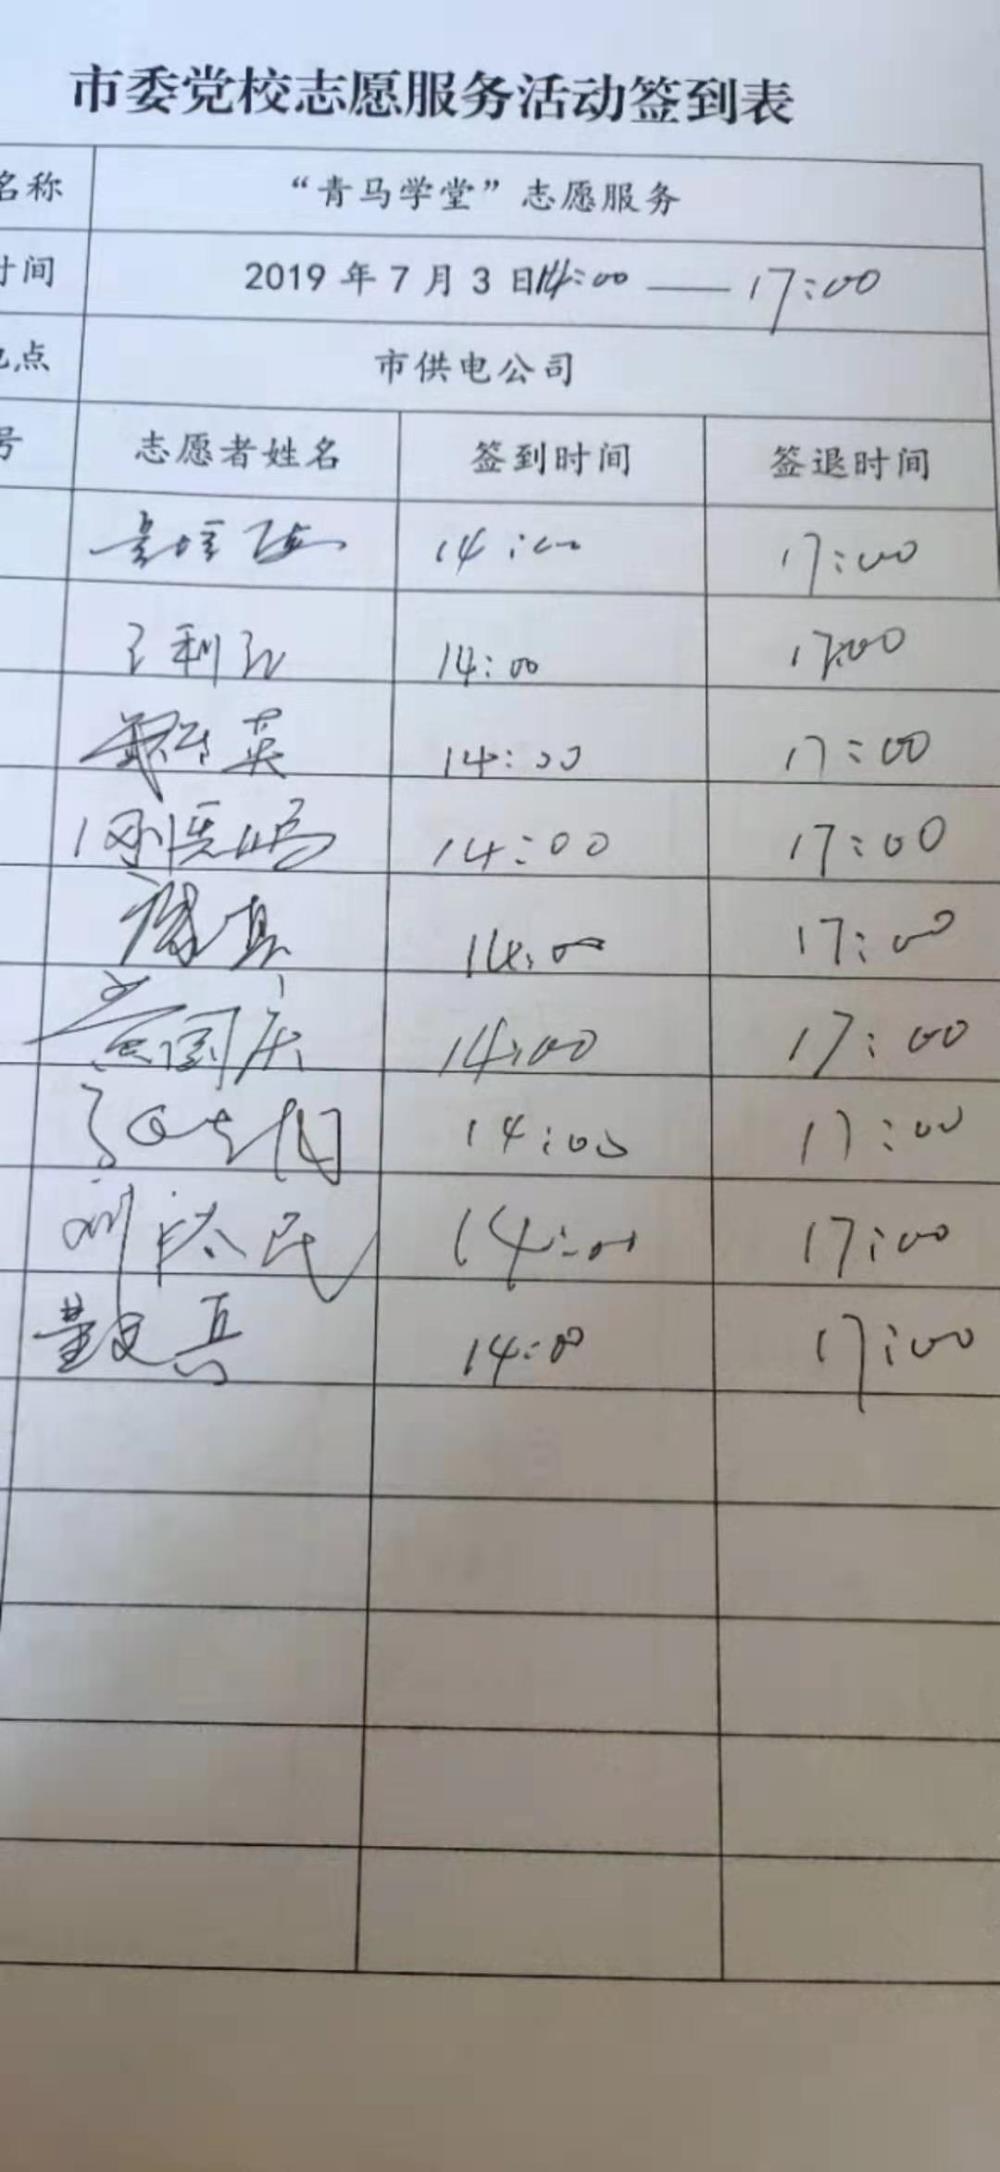 市委党校志愿服务活动签到表
名称 “青马学堂”志愿服务
时间 2019年7月3日14:00——17:00
地点 市供电公司
号 志愿者姓名 签到时间 签退时间
14:00 17:00
利 14:00 17:00
英 14:00 17:00
14:00 17:00
14:00 17:00
国庆 14:00 17:00
14:00 17:00
刘 民 14:00 17:00
董文兵 14:00 17:00